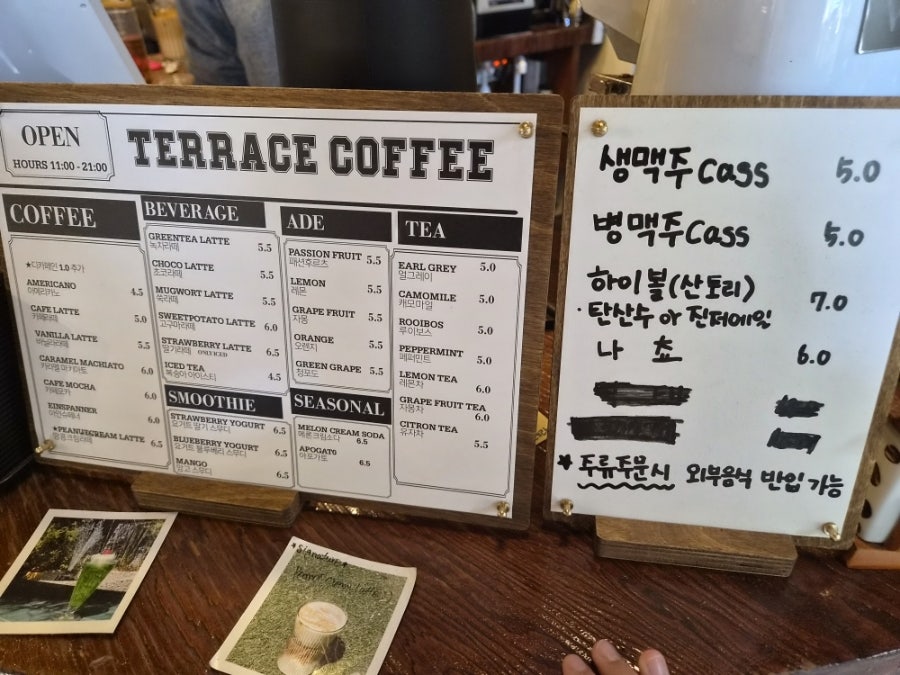 OPEN
HOURS 11:00 - 21:00
TERRACE COFFEE
COFFEE
★디카페인 1.0 추가
AMERICANO 4.5
아메리카노
CAFE LATTE 5.0
카페라떼
VANILLA LATTE 5.5
바닐라라떼
CARAMEL MACHIATO 6.0
카라멜 마키아토
CAFE MOCHA 6.0
카페모카
EINSPANNER 6.0
아인슈페너
★PEANUTCREAM LATTE 6.5
땅콩크림라떼
BEVERAGE
GREENTEA LATTE 5.5
녹차라떼
CHOCO LATTE 5.5
초코라떼
MUGWORT LATTE 5.5
쑥라떼
SWEETPOTATO LATTE 6.0
고구마라떼
STRAWBERRY LATTE 6.5
딸기라떼 ONLY ICED
ICED TEA 4.5
복숭아 아이스티
SMOOTHIE
STRAWBERRY YOGURT 6.5
요거트 딸기 스무디
BLUEBERRY YOGURT 6.5
요거트 블루베리 스무디
MANGO 6.5
망고 스무디
ADE
PASSION FRUIT 5.5
패션후르츠
LEMON 5.5
레몬
GRAPE FRUIT 5.5
자몽
ORANGE 5.5
오렌지
GREEN GRAPE 5.5
청포도
SEASONAL
MELON CREAM SODA 6.5
메론크림소다
APOGATO 6.5
아포가토
TEA
EARL GREY 5.0
얼그레이
CAMOMILE 5.0
캐모마일
ROOIBOS 5.0
루이보스
PEPPERMINT 5.0
페퍼민트
LEMON TEA 6.0
레몬차
GRAPE FRUIT TEA 6.0
자몽차
CITRON TEA 5.5
유자차
생맥주 Cass 5.0
병맥주 Cass 5.0
하이볼(산토리) 7.0
·탄산수 or 진저에일
나쵸 6.0
★ 주류주문시 외부음식 반입 가능
★Signature★